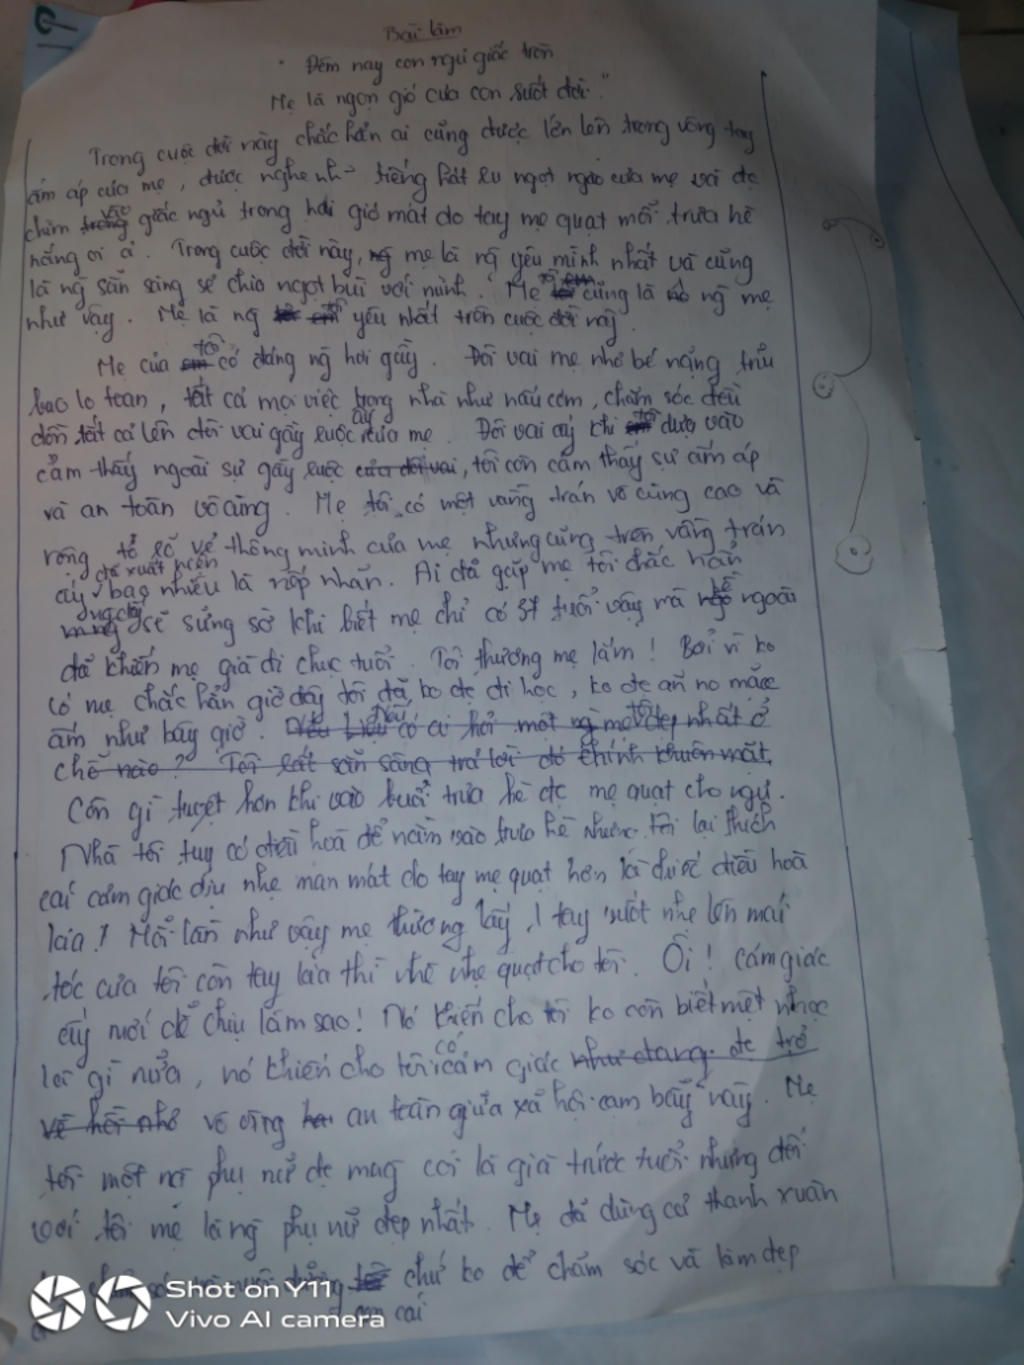 Bài làm
"Đêm nay con ngủ giấc tròn
Mẹ là ngọn gió của con suốt đời."
Trong cuộc đời này chắc hẳn ai cũng được lớn lên trong vòng tay
ấm áp của mẹ, được nghe tiếng hát ru ngọt ngào của mẹ và đc
chìm vào giấc ngủ trong hơi gió mát do tay mẹ quạt mỗi trưa hè
nắng oi ả. Trong cuộc đời này, mẹ là ng yêu mình nhất và cũng
là ng sẵn sàng sẻ chia ngọt bùi với mình. Mẹ tôi cũng là ng mẹ
như vậy. Mẹ là ng tôi yêu nhất trên cuộc đời này.
Mẹ của tôi có dáng ng hơi gầy. Đôi vai mẹ nhỏ bé nặng trĩu
bao lo toan, tất cả mọi việc trong nhà như nấu cơm, chăm sóc đều
dồn tất cả lên đôi vai gầy guộc ấy của mẹ. Đôi vai ấy khi tôi dựa vào
cảm thấy ngoài sự gầy guộc của đôi vai, tôi còn cảm thấy sự ấm áp
và an toàn vô cùng. Mẹ tôi có một vầng trán vô cùng cao và
rộng tỏ rõ vẻ thông minh của mẹ nhưng cũng trên vầng trán
ấy đã xuất hiện bao nhiêu là nếp nhăn. Ai đã gặp mẹ tôi chắc hẳn
sẽ sững sờ khi biết mẹ chỉ có 37 tuổi vậy mà bề ngoài
đã khiến mẹ già đi chục tuổi. Tôi thương mẹ lắm! Bởi vì ko
có mẹ chắc hẳn giờ đây tôi đã ko đc đi học, ko đc ăn no mặc
ấm như bây giờ. Nếu có ai hỏi một ng mẹ đẹp nhất ở
chỗ nào? Tôi rất sẵn sàng trả lời đó chính khuôn mặt.
Còn gì tuyệt hơn khi vào buổi trưa hè đc mẹ quạt cho ngủ.
Nhà tôi tuy có điều hoà để nằm vào trưa hè nhưng tôi lại thích
cái cảm giác dịu nhẹ man mát do tay mẹ quạt hơn là điều hoà
kia! Mỗi lần như vậy mẹ thường lấy 1 tay vuốt nhẹ lên mái
tóc của tôi còn tay kia thì nhè nhẹ quạt cho tôi. Ôi! Cảm giác
ấy mới dễ chịu làm sao! Nó khiến cho tôi ko còn biết mệt nhọc
là gì nữa, nó khiến cho tôi có cảm giác như đang đc trở
về hồi nhỏ vô cùng an toàn giữa xã hội cạm bẫy này. Mẹ
tôi một ng phụ nữ đc mng coi là già trước tuổi nhưng đối
với tôi mẹ là ng phụ nữ đẹp nhất. Mẹ đã dùng cả thanh xuân
chứ ko để chăm sóc và làm đẹp
con cái
Shot on Y11
Vivo AI camera